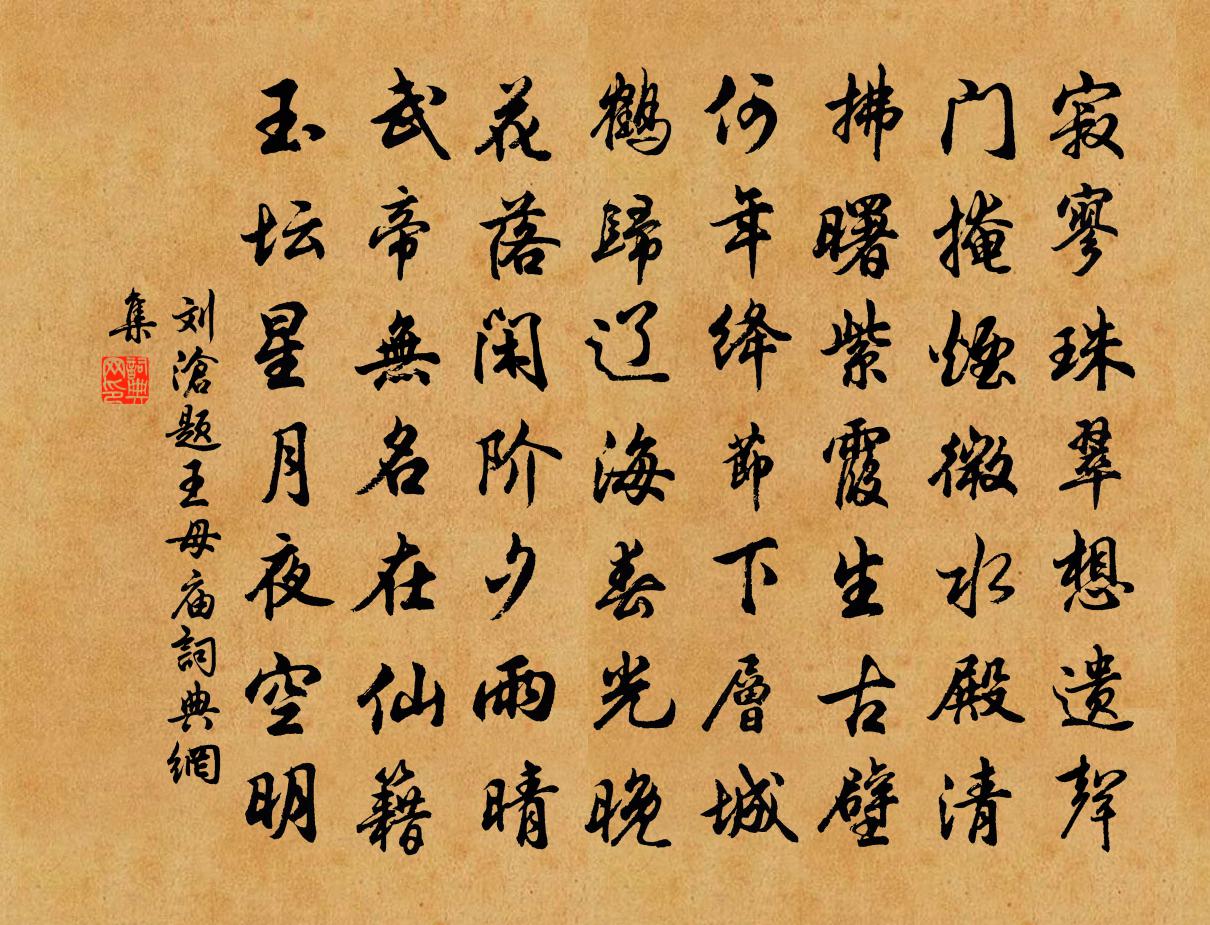 寂寥珠翠想遗聲
门掩煙微水殿清
拂曙紫霞生古壁
何年绛節下層城
鹤歸辽海春光晚
花落闲阶夕雨晴
武帝無名在仙籍
玉坛星月夜空明
刘滄题王母庙詞典網
集
詞典
网印